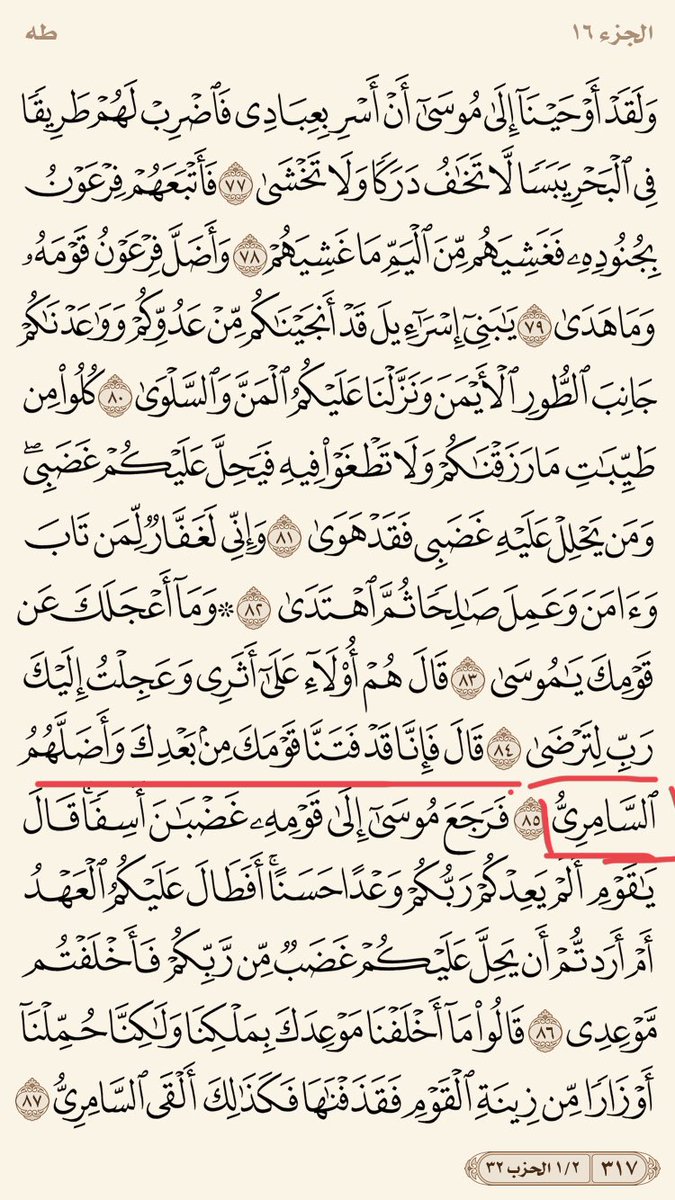 الجزء ١٦
طه
وَلَقَدْ أَوْحَيْنَآ إِلَىٰ مُوسَىٰٓ أَنْ أَسْرِ بِعِبَادِى فَٱضْرِبْ لَهُمْ طَرِيقًا
فِى ٱلْبَحْرِ يَبَسًا لَّا تَخَٰفُ دَرَكًا وَلَا تَخْشَىٰ ٧٧ فَأَتْبَعَهُمْ فِرْعَوْنُ
بِجُنُودِهِۦ فَغَشِيَهُم مِّنَ ٱلْيَمِّ مَا غَشِيَهُمْ ٧٨ وَأَضَلَّ فِرْعَوْنُ قَوْمَهُۥ
وَمَا هَدَىٰ ٧٩ يَٰبَنِىٓ إِسْرَٰٓءِيلَ قَدْ أَنجَيْنَٰكُم مِّنْ عَدُوِّكُمْ وَوَٰعَدْنَٰكُمْ
جَانِبَ ٱلطُّورِ ٱلْأَيْمَنَ وَنَزَّلْنَا عَلَيْكُمُ ٱلْمَنَّ وَٱلسَّلْوَىٰ ٨٠ كُلُوا۟ مِن
طَيِّبَٰتِ مَا رَزَقْنَٰكُمْ وَلَا تَطْغَوْا۟ فِيهِ فَيَحِلَّ عَلَيْكُمْ غَضَبِى ۖ
وَمَن يَحْلِلْ عَلَيْهِ غَضَبِى فَقَدْ هَوَىٰ ٨١ وَإِنِّى لَغَفَّارٌ لِّمَن تَابَ
وَءَامَنَ وَعَمِلَ صَٰلِحًا ثُمَّ ٱهْتَدَىٰ ٨٢ ۞ وَمَآ أَعْجَلَكَ عَن
قَوْمِكَ يَٰمُوسَىٰ ٨٣ قَالَ هُمْ أُو۟لَآءِ عَلَىٰٓ أَثَرِى وَعَجِلْتُ إِلَيْكَ
رَبِّ لِتَرْضَىٰ ٨٤ قَالَ فَإِنَّا قَدْ فَتَنَّا قَوْمَكَ مِنۢ بَعْدِكَ وَأَضَلَّهُمُ
ٱلسَّامِرِىُّ ٨٥ فَرَجَعَ مُوسَىٰٓ إِلَىٰ قَوْمِهِۦ غَضْبَٰنَ أَسِفًا ۚ قَالَ
يَٰقَوْمِ أَلَمْ يَعِدْكُمْ رَبُّكُمْ وَعْدًا حَسَنًا ۚ أَفَطَالَ عَلَيْكُمُ ٱلْعَهْدُ
أَمْ أَرَدتُّمْ أَن يَحِلَّ عَلَيْكُمْ غَضَبٌ مِّن رَّبِّكُمْ فَأَخْلَفْتُم
مَّوْعِدِى ٨٦ قَالُوا۟ مَآ أَخْلَفْنَا مَوْعِدَكَ بِمَلْكِنَا وَلَٰكِنَّا حُمِّلْنَآ
أَوْزَارًا مِّن زِينَةِ ٱلْقَوْمِ فَقَذَفْنَٰهَا فَكَذَٰلِكَ أَلْقَى ٱلسَّامِرِىُّ ٨٧
٣١٧ ١/٢ الحزب ٣٢